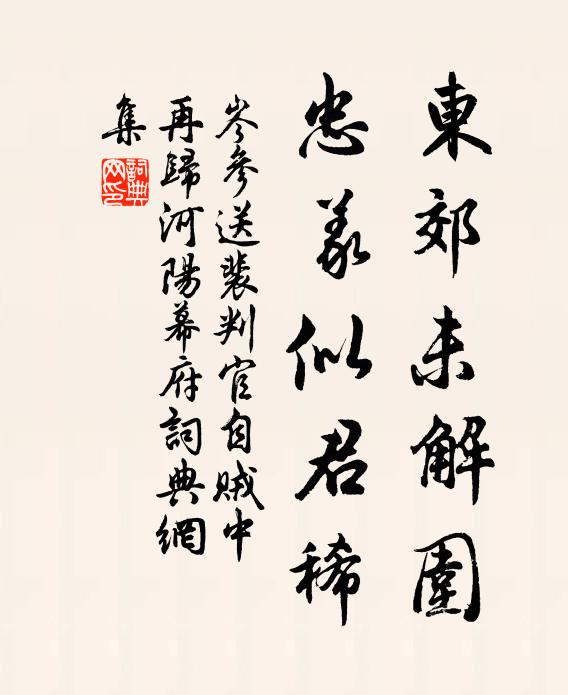 東郊未解圍
忠義似君稀
岑參送裴判官自賊中
再歸河陽幕府詞典網
集
詞典網印